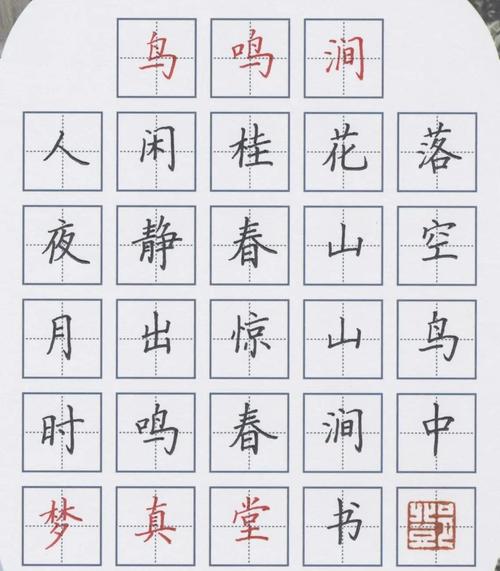 鸟鸣涧
人闲桂花落
夜静春山空
月出惊山鸟
时鸣春涧中
梦真堂书